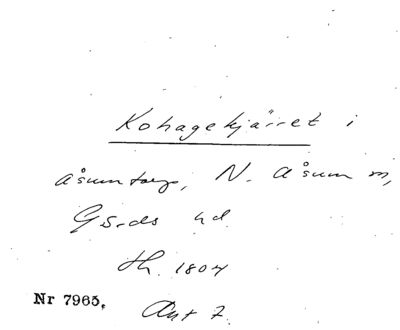 Kohagekjärret i
Åsumtorp, N. Åsum m,
Gärds hd.
th. 1804
Nr 7965. Akt 7.